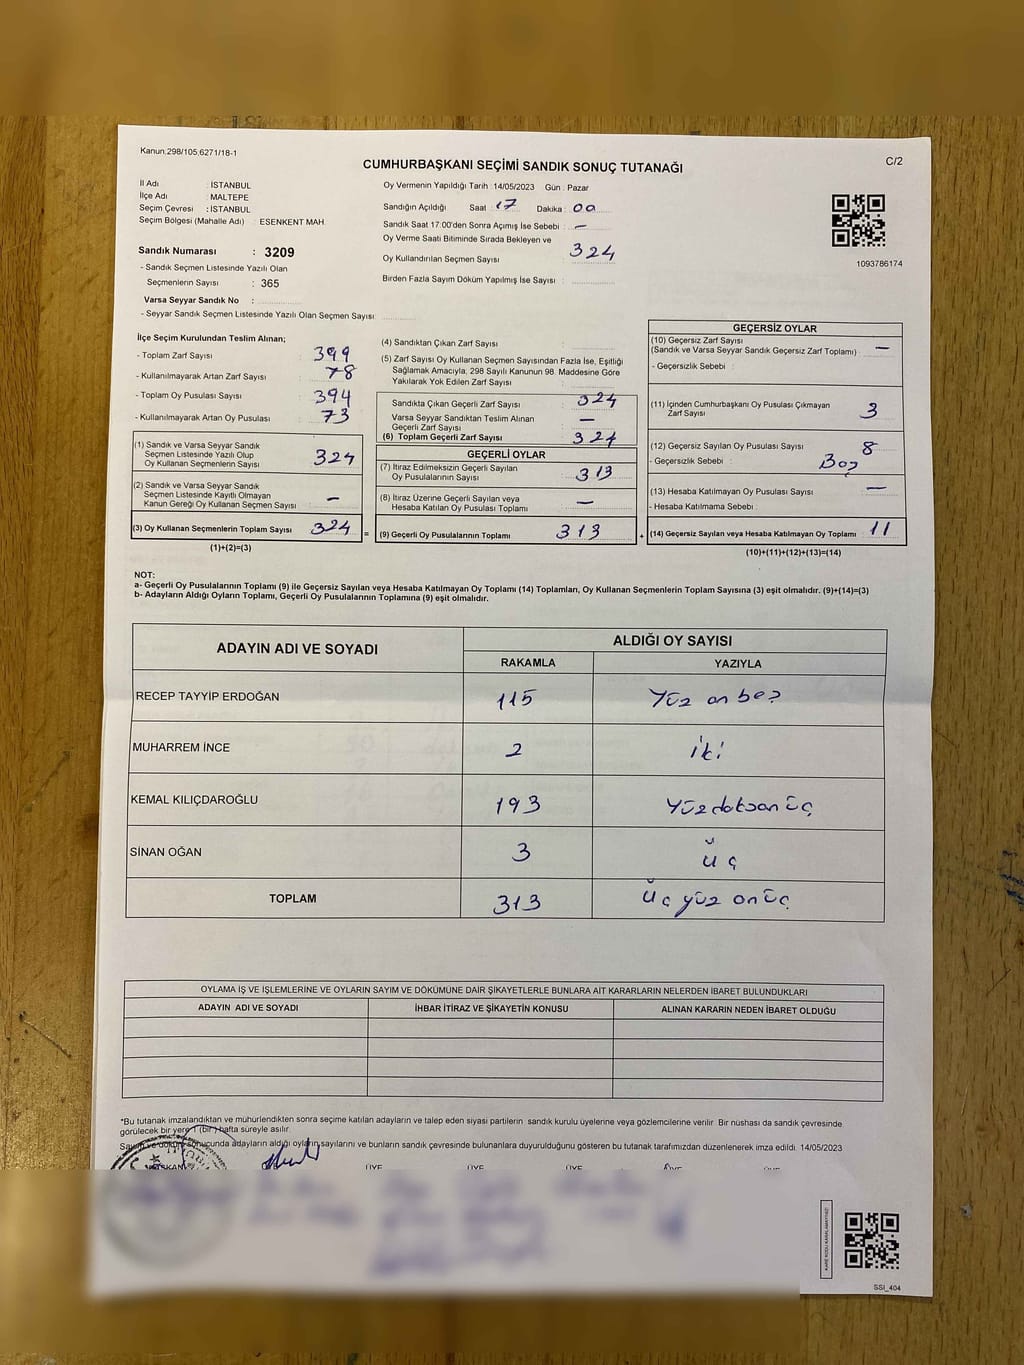 Kanun:298/105,6271/18-1
CUMHURBAŞKANI SEÇİMİ SANDIK SONUÇ TUTANAĞI
C/2
İl Adı : İSTANBUL
İlçe Adı : MALTEPE
Seçim Çevresi : İSTANBUL
Seçim Bölgesi (Mahalle Adı) : ESENKENT MAH.
Sandık Numarası : 3209
- Sandık Seçmen Listesinde Yazılı Olan
Seçmenlerin Sayısı : 365
Varsa Seyyar Sandık No :
- Seyyar Sandık Seçmen Listesinde Yazılı Olan Seçmen Sayısı:
Oy Vermenin Yapıldığı Tarih : 14/05/2023 Gün : Pazar
Sandığın Açıldığı Saat : 17 Dakika : 00
Sandık Saat 17:00'den Sonra Açımış İse Sebebi : —
Oy Verme Saati Bitiminde Sırada Bekleyen ve
Oy Kullandırılan Seçmen Sayısı : 324
Birden Fazla Sayım Döküm Yapılmış İse Sayısı :
1093786174
İlçe Seçim Kurulundan Teslim Alınan;
- Toplam Zarf Sayısı : 399
- Kullanılmayarak Artan Zarf Sayısı : 78
- Toplam Oy Pusulası Sayısı : 394
- Kullanılmayarak Artan Oy Pusulası : 73
(1) Sandık ve Varsa Seyyar Sandık
Seçmen Listesinde Yazılı Olup
Oy Kullanan Seçmenlerin Sayısı : 324
(2) Sandık ve Varsa Seyyar Sandık
Seçmen Listesinde Kayıtlı Olmayan
Kanun Gereği Oy Kullanan Seçmen Sayısı : —
(3) Oy Kullanan Seçmenlerin Toplam Sayısı : 324 =
(1)+(2)=(3)
(4) Sandıktan Çıkan Zarf Sayısı :
(5) Zarf Sayısı Oy Kullanan Seçmen Sayısından Fazla İse, Eşitliği
Sağlamak Amacıyla; 298 Sayılı Kanunun 98. Maddesine Göre
Yakılarak Yok Edilen Zarf Sayısı :
Sandıkta Çıkan Geçerli Zarf Sayısı : 324
Varsa Seyyar Sandıktan Teslim Alınan
Geçerli Zarf Sayısı : —
(6) Toplam Geçerli Zarf Sayısı : 324
GEÇERLİ OYLAR
(7) İtiraz Edilmeksizin Geçerli Sayılan
Oy Pusulalarının Sayısı : 313
(8) İtiraz Üzerine Geçerli Sayılan veya
Hesaba Katılan Oy Pusulası Toplamı : —
(9) Geçerli Oy Pusulalarının Toplamı : 313 +
GEÇERSİZ OYLAR
(10) Geçersiz Zarf Sayısı
(Sandık ve Varsa Seyyar Sandık Geçersiz Zarf Toplamı) : —
- Geçersizlik Sebebi :
(11) İçinden Cumhurbaşkanı Oy Pusulası Çıkmayan
Zarf Sayısı : 3
(12) Geçersiz Sayılan Oy Pusulası Sayısı : 8
- Geçersizlik Sebebi : Boş
(13) Hesaba Katılmayan Oy Pusulası Sayısı : —
- Hesaba Katılmama Sebebi :
(14) Geçersiz Sayılan veya Hesaba Katılmayan Oy Toplamı : 11
(10)+(11)+(12)+(13)=(14)
NOT:
a- Geçerli Oy Pusulalarının Toplamı (9) ile Geçersiz Sayılan veya Hesaba Katılmayan Oy Toplamı (14) Toplamları, Oy Kullanan Seçmenlerin Toplam Sayısına (3) eşit olmalıdır. (9)+(14)=(3)
b- Adayların Aldığı Oyların Toplamı, Geçerli Oy Pusulalarının Toplamına (9) eşit olmalıdır.
ADAYIN ADI VE SOYADI
ALDIĞI OY SAYISI
RAKAMLA YAZIYLA
RECEP TAYYİP ERDOĞAN 115 Yüz on beş
MUHARREM İNCE 2 iki
KEMAL KILIÇDAROĞLU 193 Yüzdoksan üç
SİNAN OĞAN 3 üç
TOPLAM 313 üç yüz onüç
OYLAMA İŞ VE İŞLEMLERİNE VE OYLARIN SAYIM VE DÖKÜMÜNE DAİR ŞİKAYETLERLE BUNLARA AİT KARARLARIN NELERDEN İBARET BULUNDUKLARI
ADAYIN ADI VE SOYADI İHBAR İTİRAZ VE ŞİKAYETİN KONUSU ALINAN KARARIN NEDEN İBARET OLDUĞU
*Bu tutanak imzalandıktan ve mühürlendikten sonra seçime katılan adayların ve talep eden siyasi partilerin sandık kurulu üyelerine veya gözlemcilerine verilir. Bir nüshası da sandık çevresinde
görülecek bir yere 1 (bir) hafta süreyle asılır.
Sayım ve döküm sonucunda adayların aldığı oyların sayılarını ve bunların sandık çevresinde bulunanlara duyurulduğunu gösteren bu tutanak tarafımızdan düzenlenerek imza edildi. 14/05/2023
ÜYE ÜYE ÜYE
SSI_404